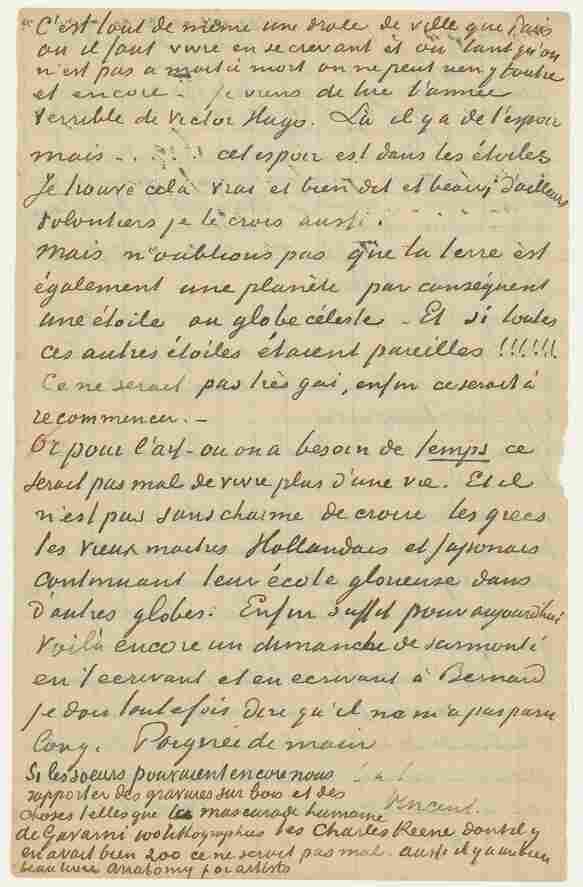 C'est tout de même une drole de ville que Paris
ou il faut vivre en se crevant et où tant qu'on
n'est pas a moitié mort on ne peut rien y foutre
et encore. Je viens de lire l'année
terrible de Victor Hugo. Là il y a de l'espoir
mais..... cet espoir est dans les étoiles
Je trouve cela vrai et bien dit et beau, d'ailleurs
volontiers je le crois aussi.
Mais n'oublions pas que la terre est
également une planète par conséquent
une étoile ou globe céleste - Et si toutes
ces autres étoiles étaient pareilles !!!!!!
Ce ne serait pas très gai, enfin ce serait à
recommencer. -
Or pour l'art - ou on a besoin de temps ce
serait pas mal de vivre plus d'une vie. Et il
n'est pas sans charme de croire les grecs
les vieux maitres Hollandais et Japonais
continuant leur école glorieuse dans
d'autres globes. Enfin suffit pour aujourd'hui
Voilà encore un dimanche de surmonté
en t'ecrivant et en ecrivant à Bernard
je dois toutefois dire qu'il na m'a pas paru
long. Poignée de main
Si les soeurs pouvaient encore nous
rapporter des gravures sur bois et des
Vincent.
choses telles que la mascarade humaine
de Gavarni 100 lithographies les Charles Keene dont il y
en avait bien 200 ce ne serait pas mal. aussi il y a un bien
beau livre anatomy for artists